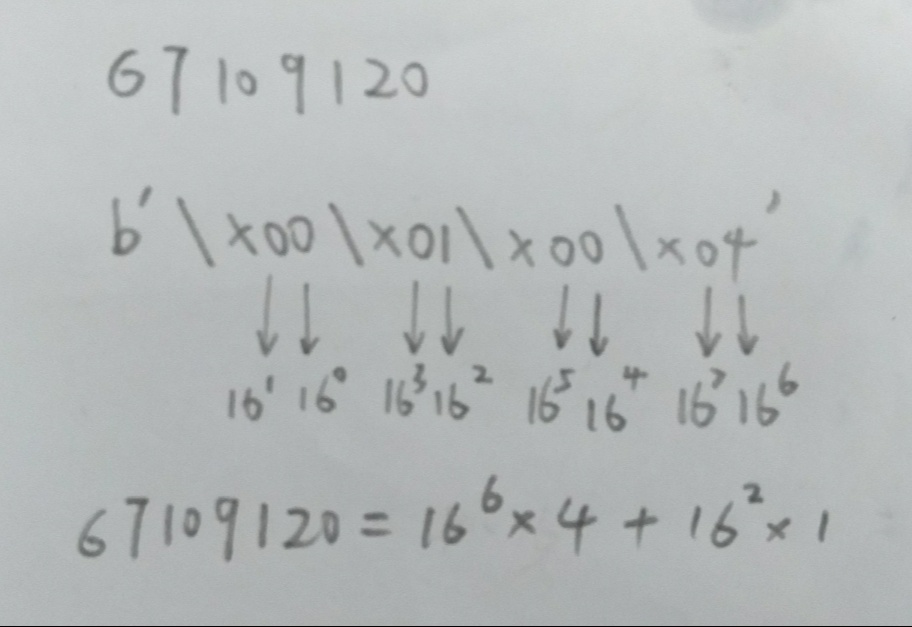 67109120
b'\x00\x01\x00\x04'
16¹ 16⁰ 16³ 16² 16⁵ 16⁴ 16⁷ 16⁶
67109120 = 16⁶ × 4 + 16² × 1